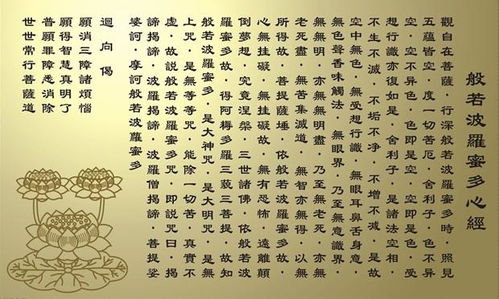 般若波羅蜜多心經
觀自在菩薩·行深般若波羅蜜多時·照見
五蘊皆空·度一切苦厄·舍利子·色不異
空·空不异色·色即是空·空即是色·受
想行識亦復如是·舍利子·是諸法空相·
不生不滅·不垢不淨·不增不減·是故
空中無色·無受想行識·無眼耳鼻舌身意·
無色聲香味觸法·無眼界·乃至無意識界·
無無明·亦無無明盡·乃至無老死·亦無
老死盡·無苦集滅道·無智亦無得·以無
所得故·菩提薩埵·依般若波羅蜜多故·
心無挂礙·無挂礙故·無有恐怖·遠離顛
倒夢想·究竟涅槃·三世諸佛·依般若波
羅蜜多故·得阿耨多羅三藐三菩提·故知
般若波羅蜜多·是大神咒·是大明咒·是無
上咒·是無等等咒·能除一切苦·真實不
虛·故説般若波羅蜜多咒·即説咒曰·揭
諦揭諦·波羅揭諦·波羅僧揭諦·菩提娑
婆訶·摩訶般若波羅蜜多
迴向偈
願消三障諸煩惱
願得智慧真明了
普願罪障悉消除
世世常行菩薩道